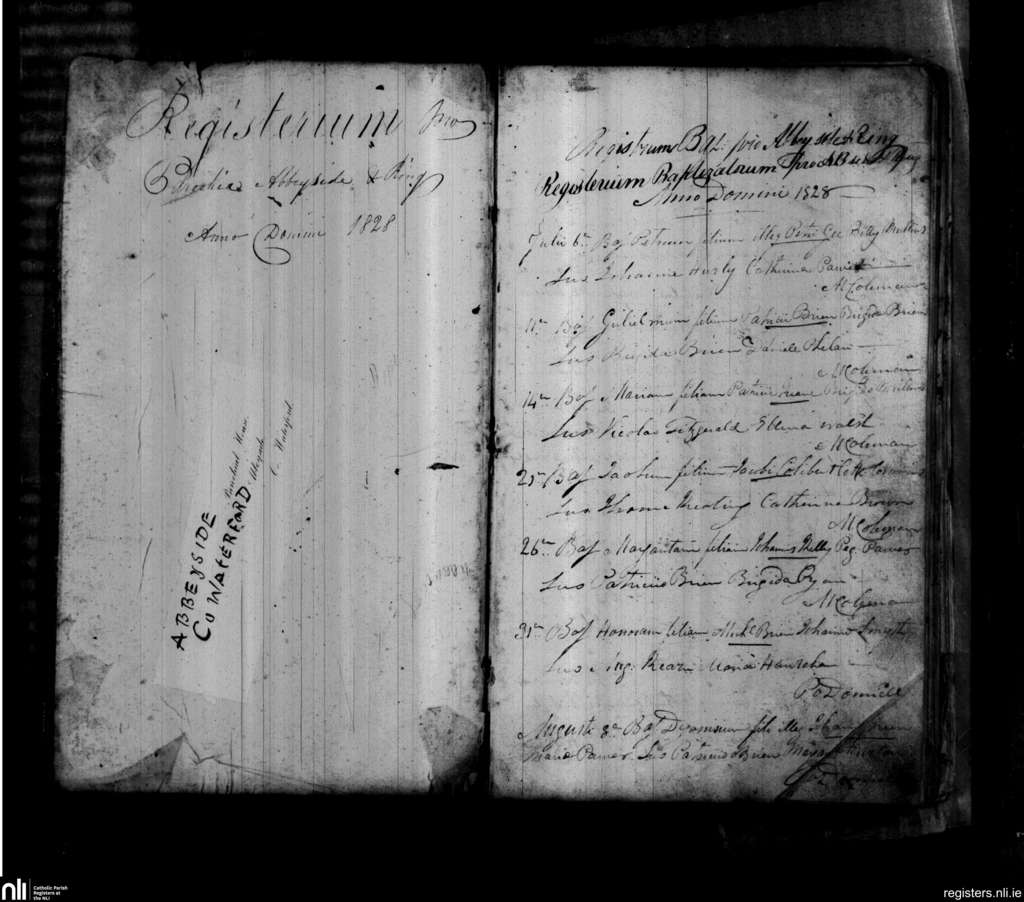 Registerium pro
Parochia Abbeyside & Ring
Anno Domini 1828
ABBEYSIDE
Co WATERFORD
Parochial House
Abbeyside
Co Waterford
Registrum Bap. pro Abbyside & Ring
Registerium Baptizatorum pro Ab & Ring
Anno Domini 1828
Julii 6th Bap Petrum filium Petri Gee Betty
Sus Johanne Hurly Catherina Power
M Coleman
11th Bap Gulielmum filium Brien Brigida Brien
Sus Brigida Brien Daniele Phelan
M Coleman
14th Bap Mariam filiam Patricii Brigida
Sus Nicolao Fitzgerald Ellena Walsh
M Coleman
25th Bap Jacobum filium Jacobi
Sus Thoma Keeting Catherina Brown
M Coleman
26th Bap Margaritam filiam Johannis Kelly Peg Power
Sus Patricio Brien Brigida Ryan
M Coleman
31th Bap Honoram filiam Michl Brien Johanna Smyth
Sus Maria Hanrahan
P O Donnell
Augusti 3th Bap Dyonisium
Maria Power Sus Patricio Brien
nli
Catholic Parish
Registers at
the NLI
registers.nli.ie